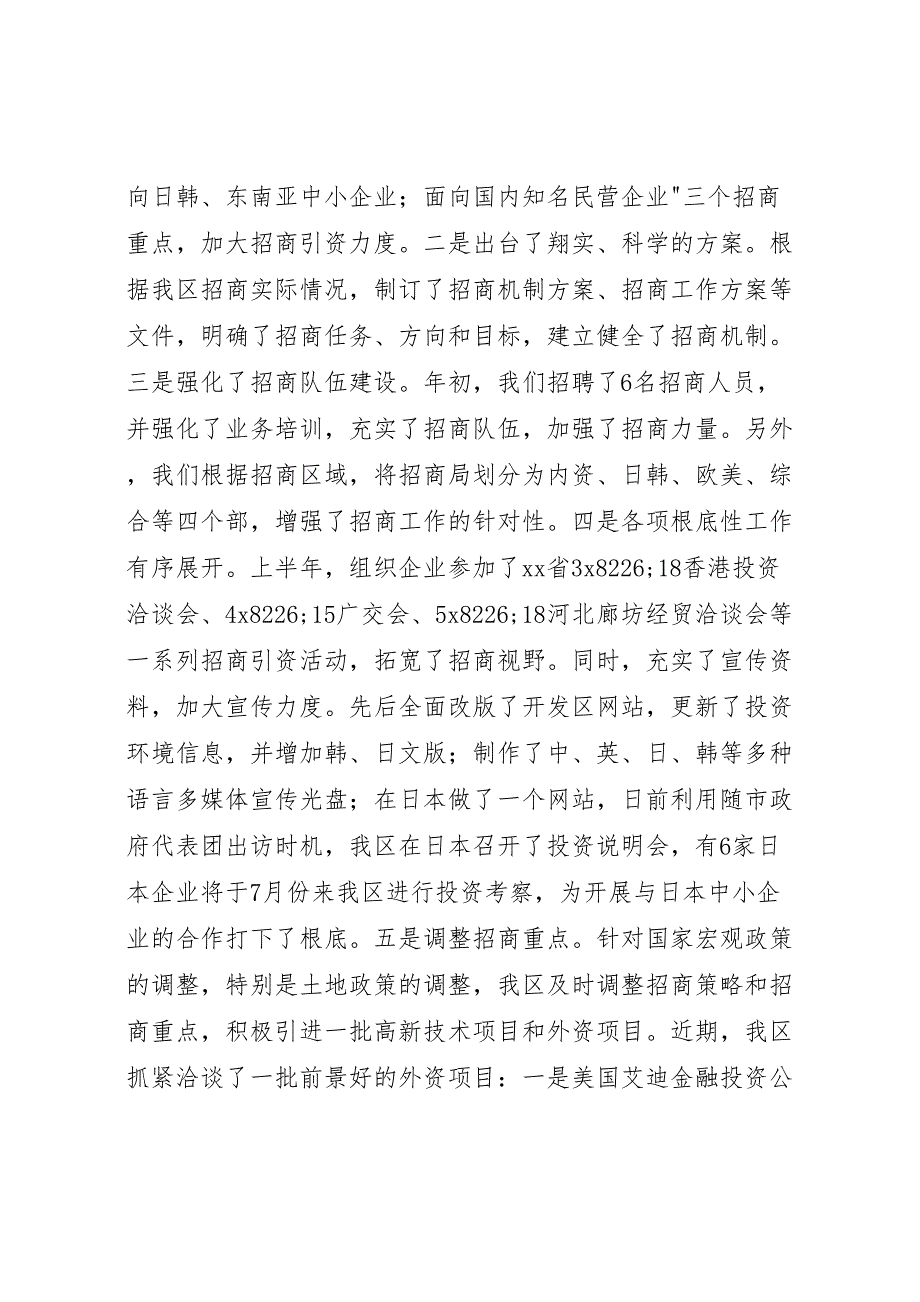 向日韩、东南亚中小企业；面向国内知名民营企业"三个招商
重点，加大招商引资力度。二是出台了翔实、科学的方案。根
据我区招商实际情况，制订了招商机制方案、招商工作方案等
文件，明确了招商任务、方向和目标，建立健全了招商机制。
三是强化了招商队伍建设。年初，我们招聘了6名招商人员，
并强化了业务培训，充实了招商队伍，加强了招商力量。另外
，我们根据招商区域，将招商局划分为内资、日韩、欧美、综
合等四个部，增强了招商工作的针对性。四是各项根底性工作
有序展开。上半年，组织企业参加了xx省3x8226;18香港投资
洽谈会、4x8226;15广交会、5x8226;18河北廊坊经贸洽谈会等
一系列招商引资活动，拓宽了招商视野。同时，充实了宣传资
料，加大宣传力度。先后全面改版了开发区网站，更新了投资
环境信息，并增加韩、日文版；制作了中、英、日、韩等多种
语言多媒体宣传光盘；在日本做了一个网站，日前利用随市政
府代表团出访时机，我区在日本召开了投资说明会，有6家日
本企业将于7月份来我区进行投资考察，为开展与日本中小企
业的合作打下了根底。五是调整招商重点。针对国家宏观政策
的调整，特别是土地政策的调整，我区及时调整招商策略和招
商重点，积极引进一批高新技术项目和外资项目。近期，我区
抓紧洽谈了一批前景好的外资项目：一是美国艾迪金融投资公